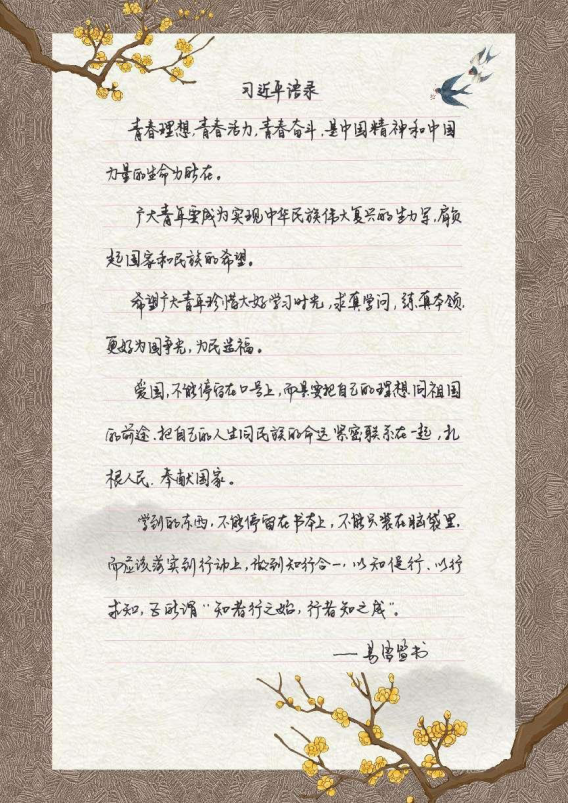 习近平语录
青春理想,青春活力,青春奋斗,是中国精神和中国
力量的生命力所在。
广大青年要成为实现中华民族伟大复兴的生力军,肩负
起国家和民族的希望。
希望广大青年珍惜大好学习时光,求真学问,练真本领,
更好为国争光,为民造福。
爱国,不能停留在口号上,而是要把自己的理想同祖国
的前途、把自己的人生同民族的命运紧密联系在一起,扎
根人民、奉献国家。
学到的东西,不能停留在书本上,不能只装在脑袋里,
而应该落实到行动上,做到知行合一,以知促行、以行
求知,正所谓“知者行之始,行者知之成”。
——易 书